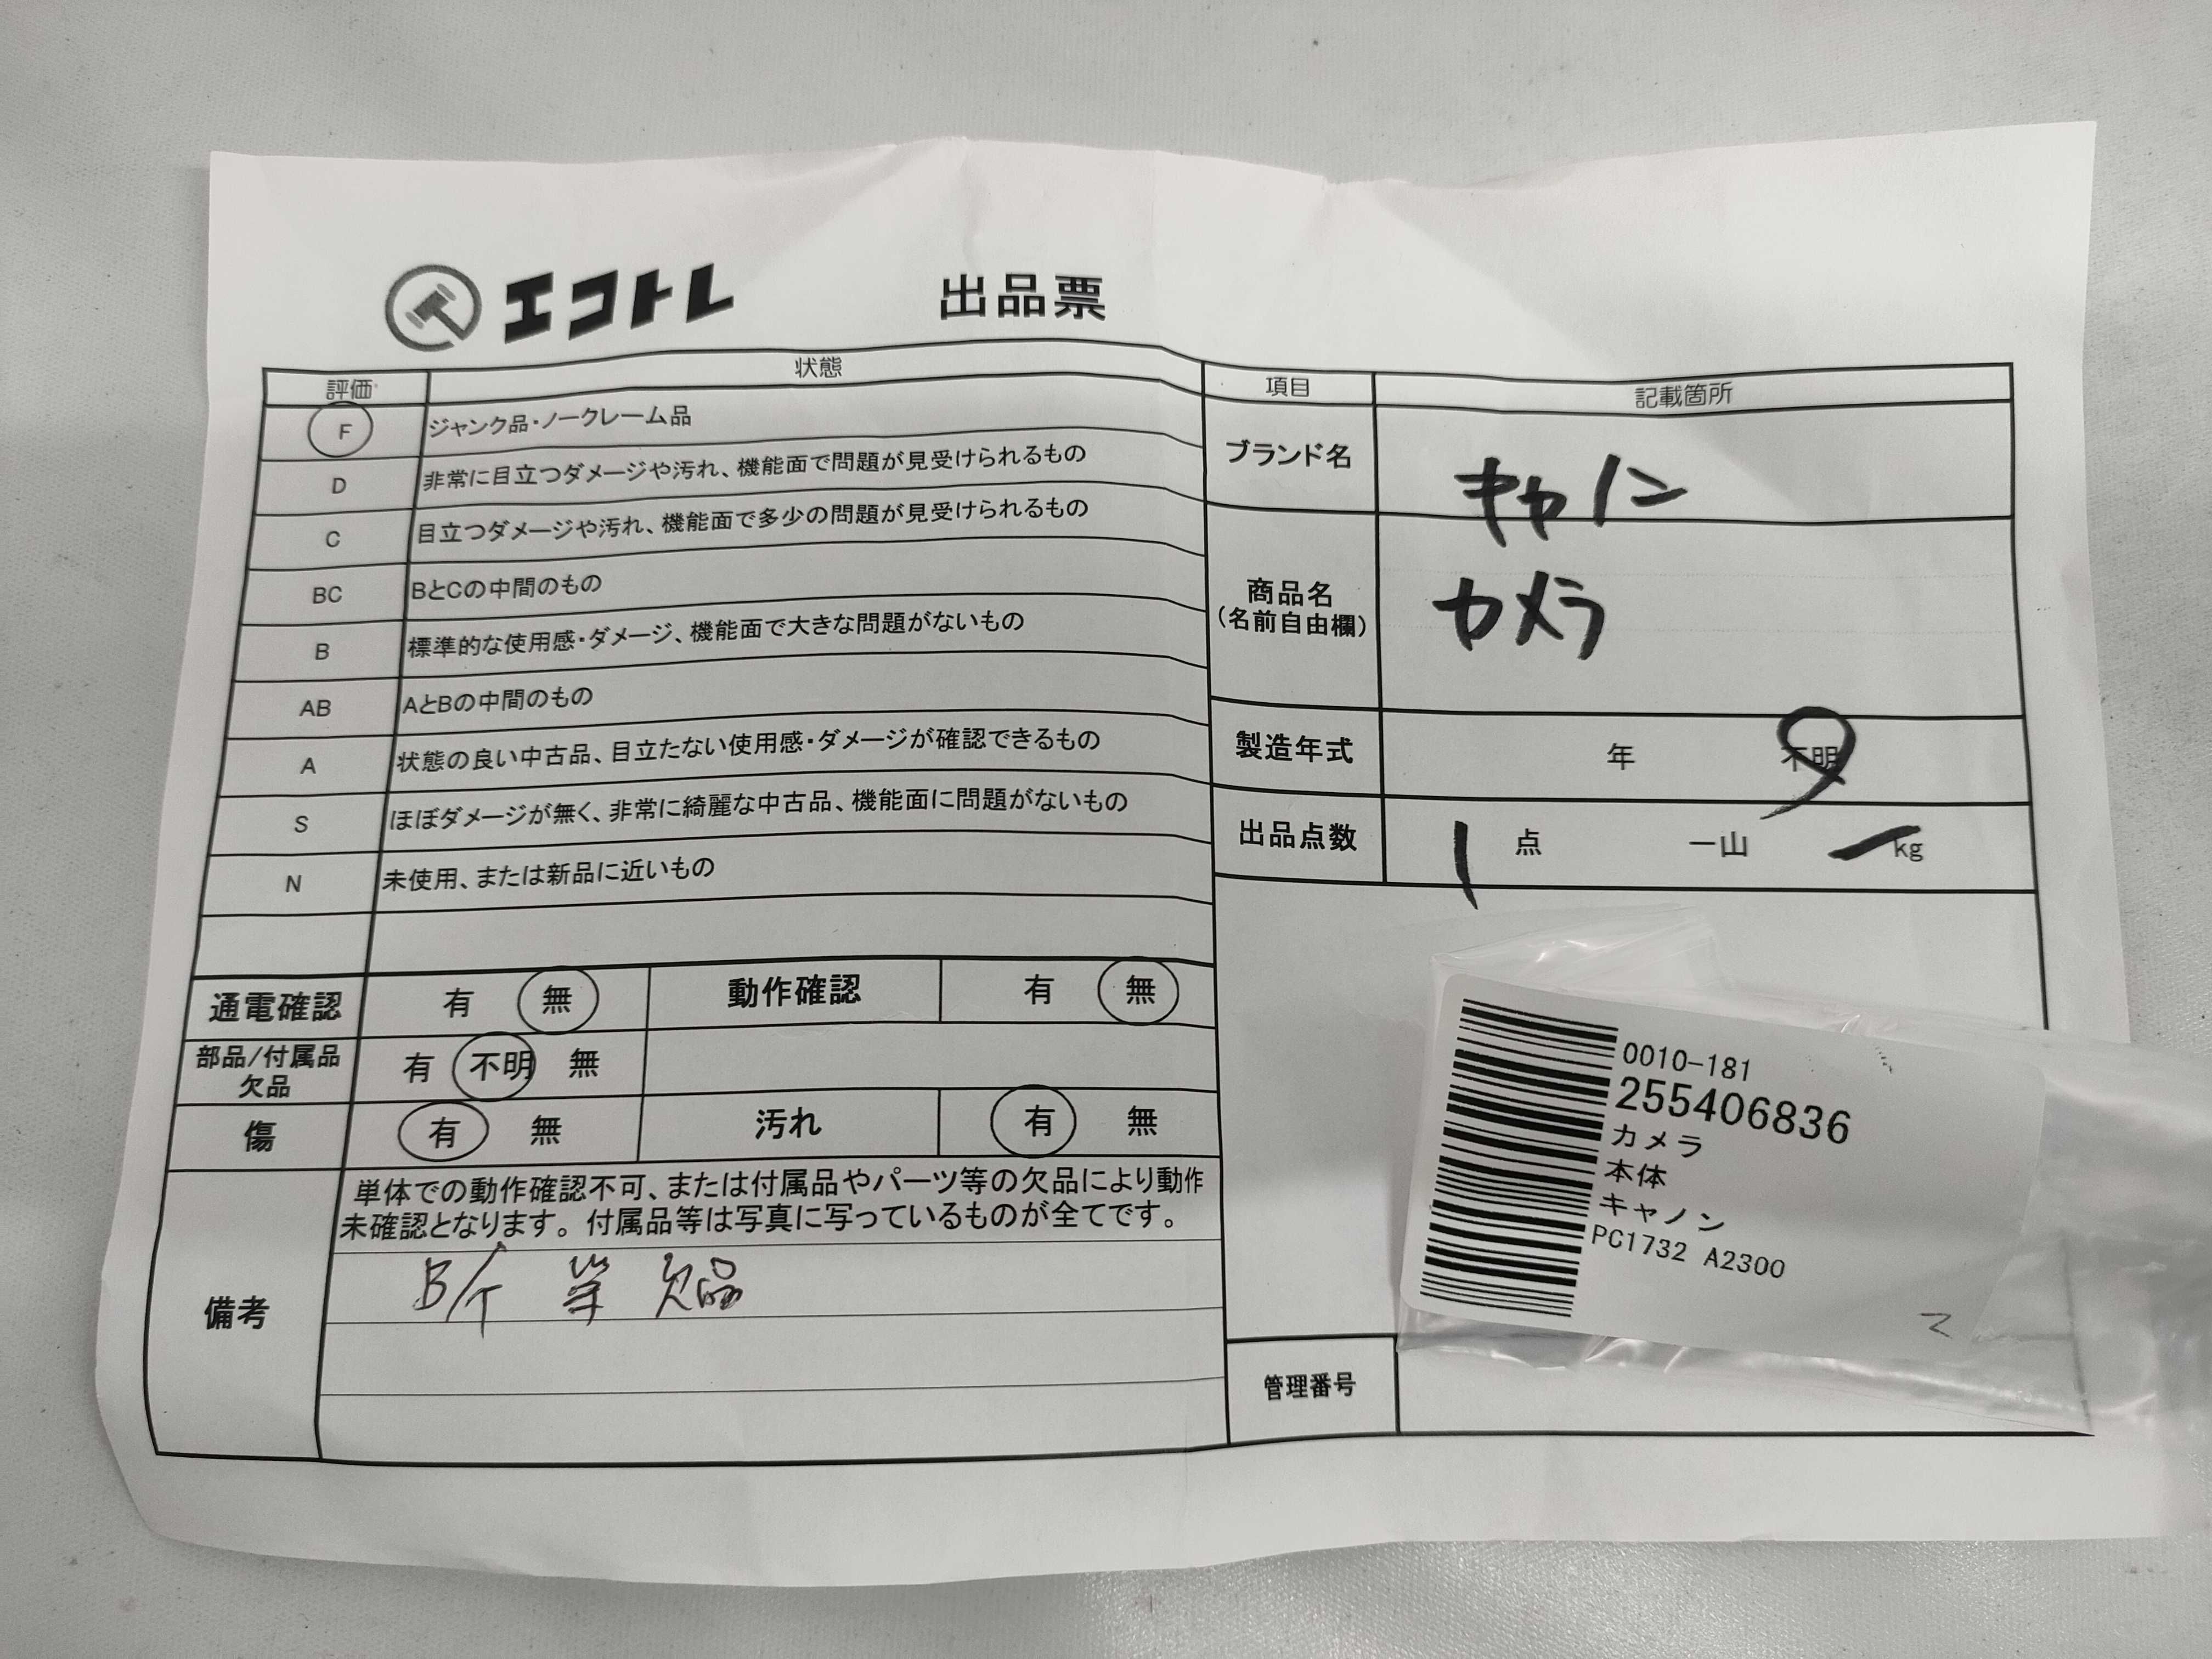 エコトレ 出品票
評価 状態
F ジャンク品・ノークレーム品
D 非常に目立つダメージや汚れ、機能面で問題が見受けられるもの
C 目立つダメージや汚れ、機能面で多少の問題が見受けられるもの
BC BとCの中間のもの
B 標準的な使用感・ダメージ、機能面で大きな問題がないもの
AB AとBの中間のもの
A 状態の良い中古品、目立たない使用感・ダメージが確認できるもの
S ほぼダメージが無く、非常に綺麗な中古品、機能面に問題がないもの
N 未使用、または新品に近いもの
通電確認 有 無 動作確認 有 無
部品/付属品
欠品 有 不明 無
傷 有 無 汚れ 有 無
備考
単体での動作確認不可、または付属品やパーツ等の欠品により動作
未確認となります。付属品等は写真に写っているものが全てです。
B/T 等 欠品
項目 記載箇所
ブランド名 キャノン
商品名
(名前自由欄) カメラ
製造年式 年 不明
出品点数 1 点 一山 kg
0010-181
255406836
カメラ
本体
キャノン
PC1732 A2300
管理番号